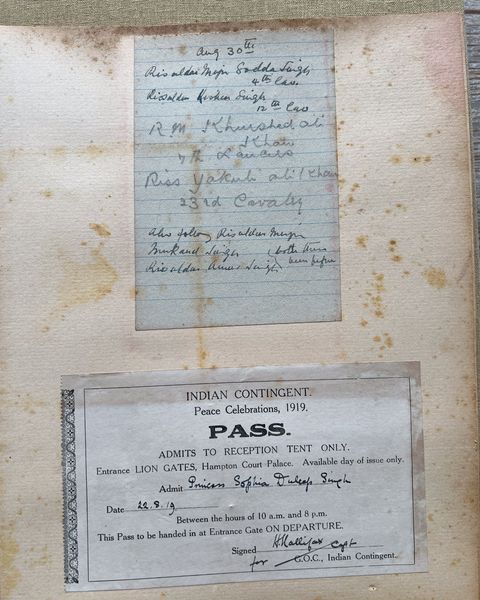 Aug 30th
Risaldar Major Sodda Singh
4th Cav.
Risaldar Kishen Singh
12th Cav
R M Khurshed ali
Khan
7th Lancers
Riss Yakub ali Khan
23rd Cavalry
Also follow Risaldar Major
Mukand Singh
Risaldar Amar Singh
(both have
been before
INDIAN CONTINGENT.
Peace Celebrations, 1919.
PASS.
ADMITS TO RECEPTION TENT ONLY.
Entrance LION GATES, Hampton Court Palace. Available day of issue only.
Admit Princess Sophia Duleep Singh
Date 22.8.19
Between the hours of 10 a.m. and 8 p.m.
This Pass to be handed in at Entrance Gate ON DEPARTURE.
Signed H Hallifax Capt
for G.O.C., Indian Contingent.